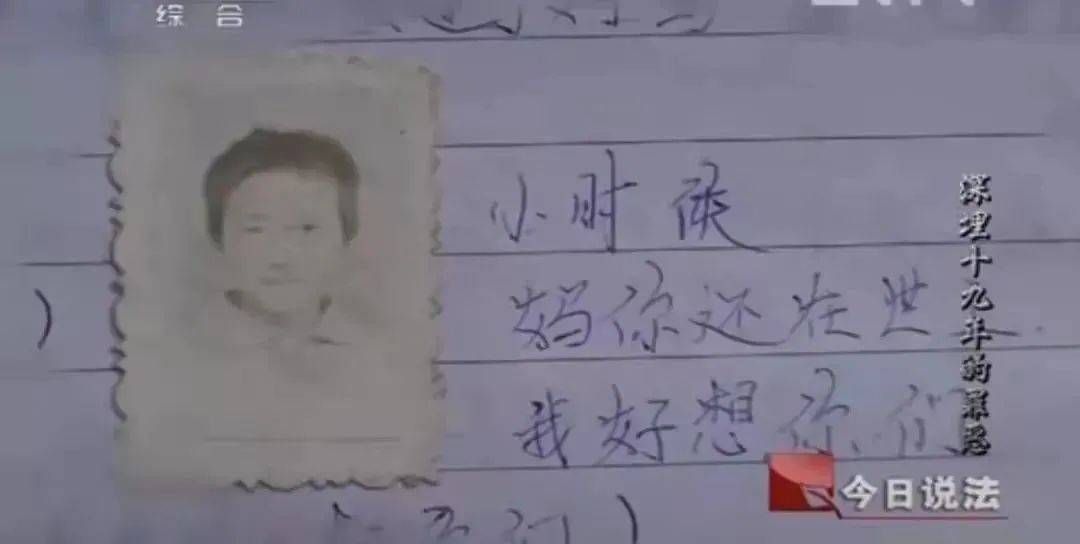 综合
小时候
妈你还在世
我好想你们
深埋十九年的罪恶
今日说法